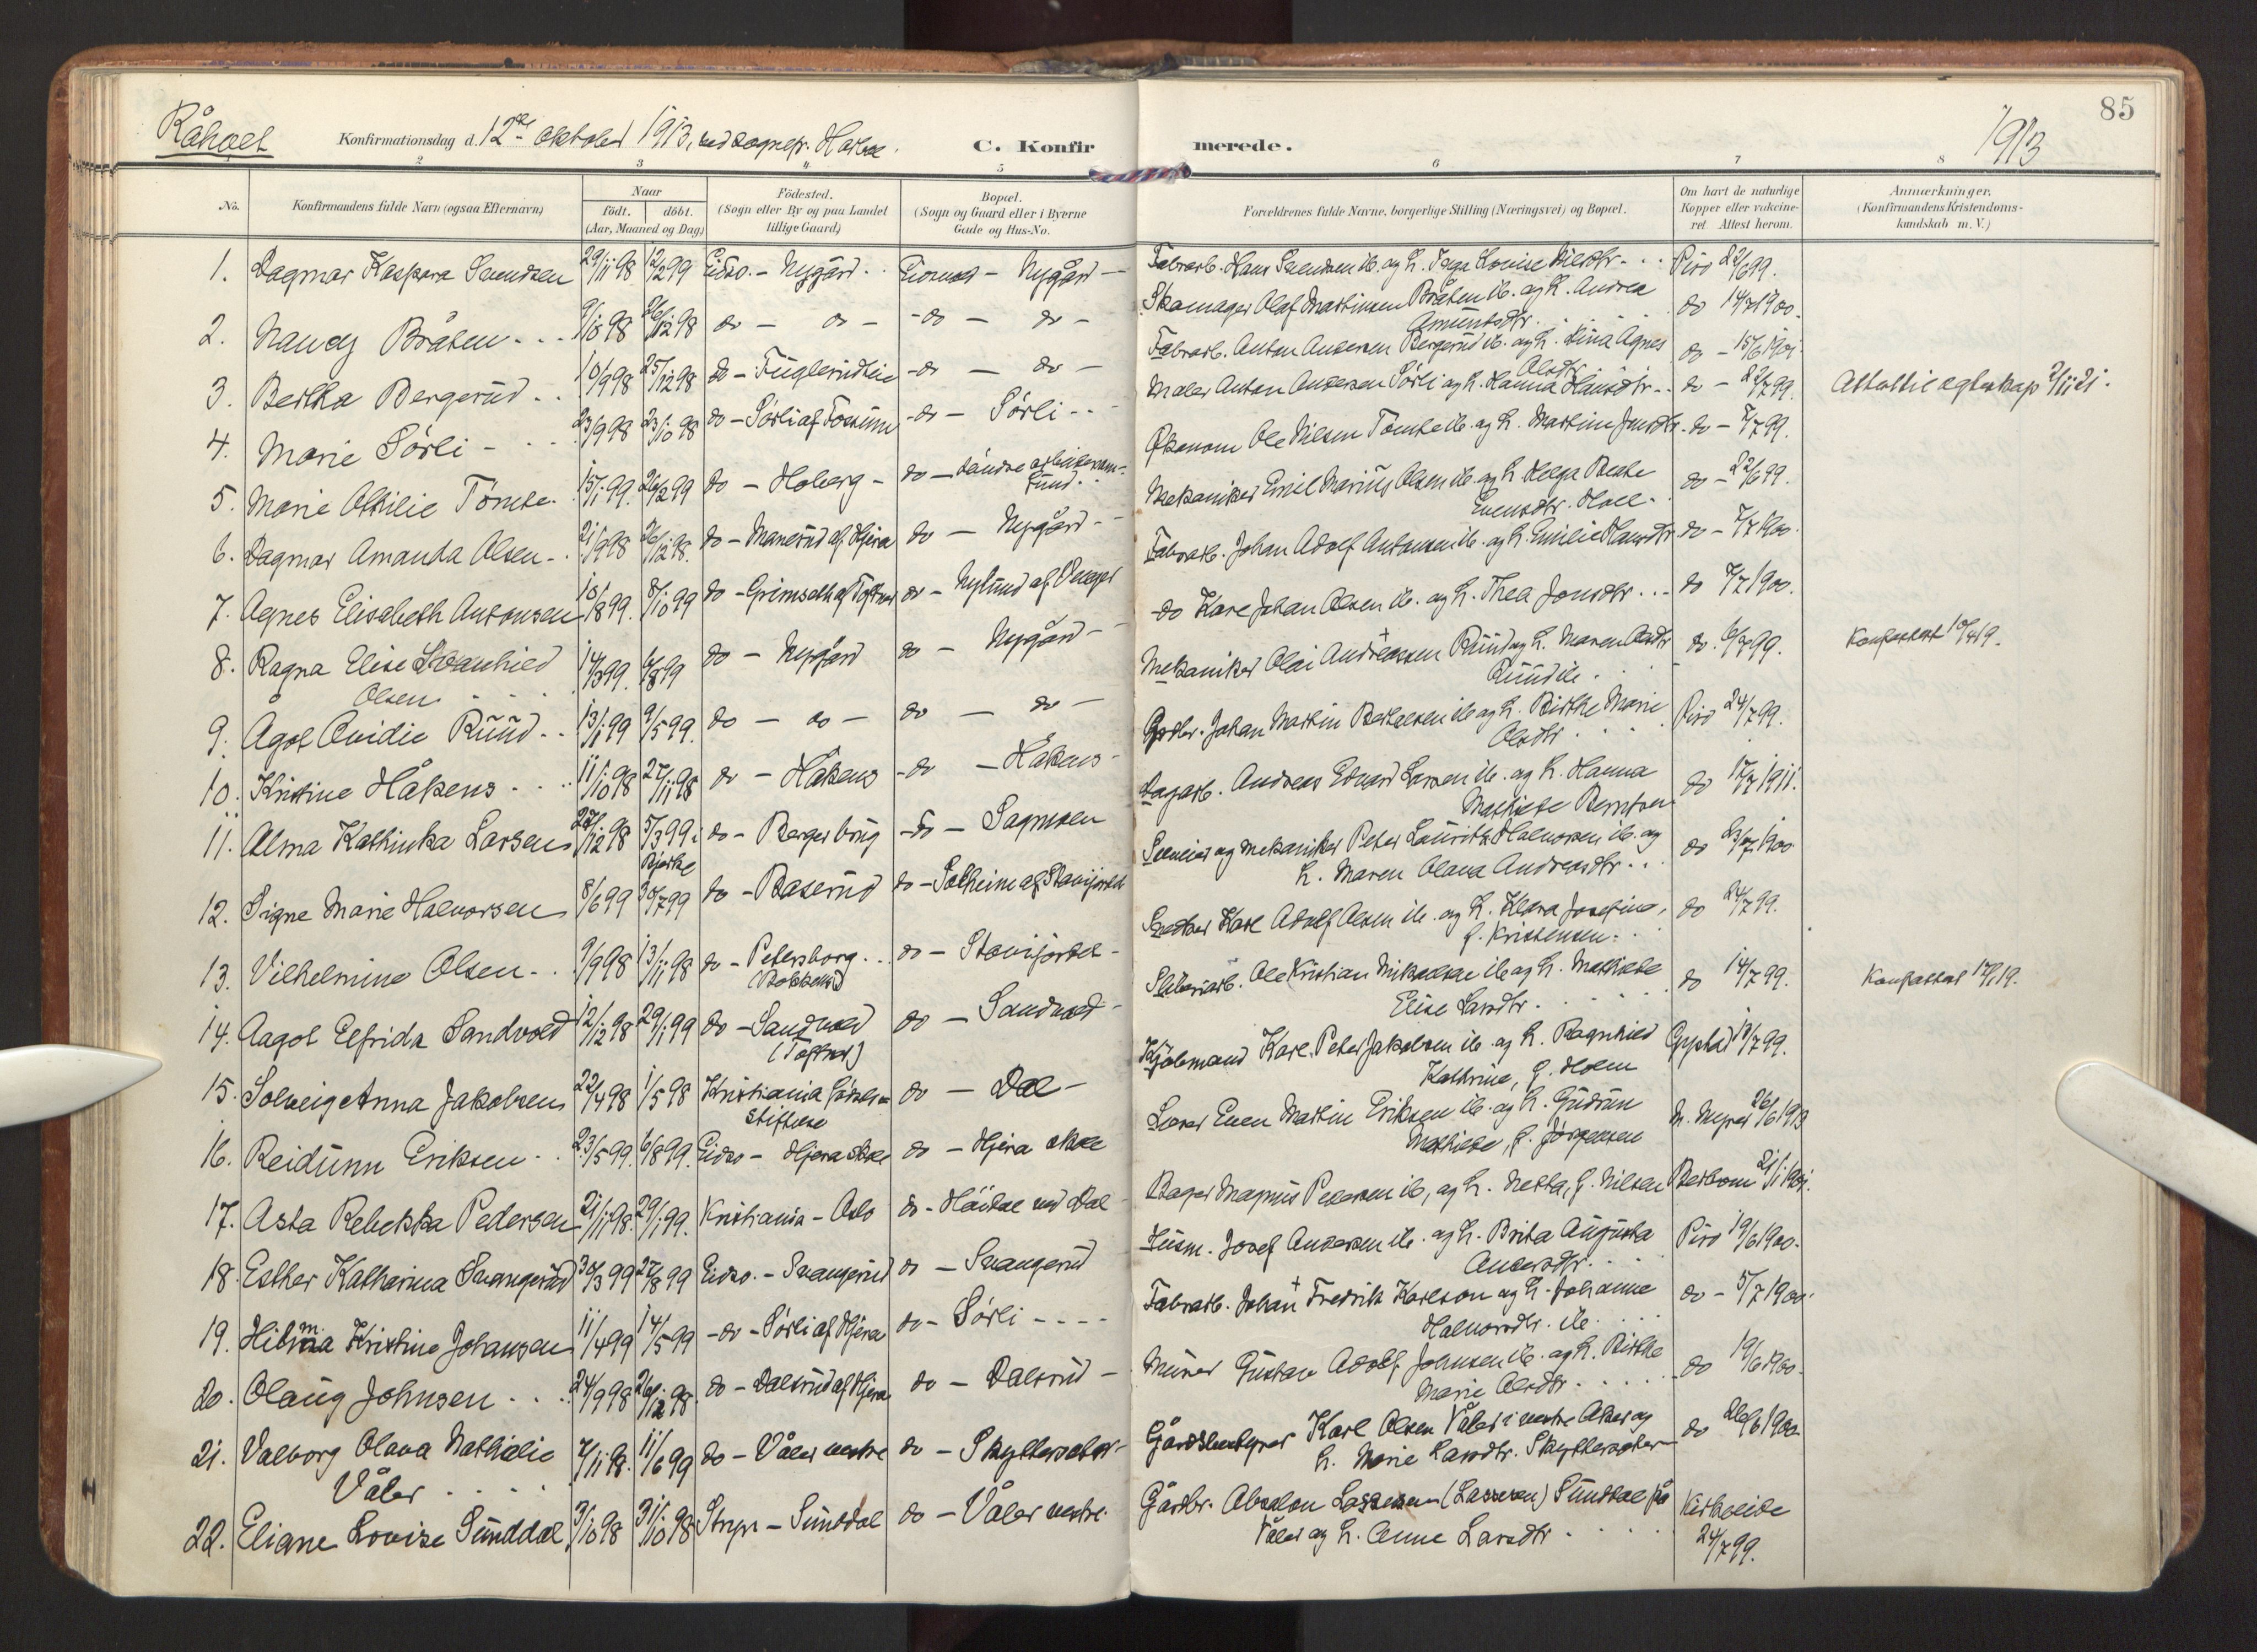 85
Råholt
Konfirmationsdag d. 12te Oktober 1913, ved sognepr.
C. Konfirmerede.
1913
2 3 4 5 6 7 8
No.
Konfirmandens fulde Navn (ogsaa Efternavn)
Naar
födt. döbt.
(Aar, Maaned og Dag)
Födested.
(Sogn eller By og paa Landet
tillige Gaard)
Bopæl.
(Sogn og Gaard eller i Byerne
Gade og Hus-No.
Forældrenes fulde Navne, borgerlige Stilling (Næringsvei) og Bopæl.
Om havt de naturlige
Kopper eller vakcine-
ret Attest herom.
Anmærkninger.
(Konfirmandens Kristendoms-
kundskab m. V.)
1. Dagmar Kaspara Svendsen 29/11 98 12/2 99 Eidsv. - Nygård Eidsvold - Nygård - Fabrarb. Hans Svendsen ib. og h. Inga Lovise Pirö 22/6 99.
2. Nancy Bråten 9/10 98 26/12 98 do - do - do - do - Skomager Olaf Martinsen Bråten ib. og h. Andrea
Amundsdtr. do 14/7 1900.
3. Bertha Bergerud 10/9 98 25/12 98 do - Fuglerudteie - do - do - Fabrarb. Anton Andersen Bergerud ib. og h. Lina Agnes
Olsdtr. do - 15/6 1901.
4. Marie Sörli 23/9 98 23/10 98 do - Sörli af Fossum - do - Sörli - Maler Anton Andersen Sörli og h. Hanna Hansdtr. do - 22/7 99. Attest til egteskap 2/11 21.
5. Marie Othilie Tömte 15/1 99. 26/2 99 do - Hoberg - do - Økonom Ole Nilsen Tömte ib. og h. Martine Jensdtr. do - 7/7 99.
6. Dagmar Amanda Olsen 21/9 98 26/12 98. do - Manerud af Hjera do - Nygård - Mekaniker Emil Marius Olsen ib. og h. Helga Beate
Evensdtr. Holt do - 22/6 99.
7. Agnes Elisabeth Antonsen 10/8 99. 8/10 99 do - Grimseth af Toftner do - Nylund af Fabrarb. Johan Adolf Antonsen ib. og h. Emilie Hansdtr. do - 7/7 1900.
8. Ragna Elise Svanhild
Olsen 14/3 99. 6/8 99 do - Nygård do - Nygård - do Karl Johan Olsen ib. og h. Thea Jonsdtr. do 7/7 1900.
9. Ågot Ovidie Ruud 13/1 99 9/5 99. do - do - do - do - Mekaniker Olai Andreassen Ruud og h. Maren
Ruud ib. do. 6/7 99.
10. Kristine Håkens 11/10 98 27/11 98 do - Håkens - do - Håkens - Grdbr. Johan Martin Bertelsen ib. og h. Birthe Marie
Olsdtr. Pirö 24/7 99.
11. Alma Kathinka Larsen 27/12 98 5/3 99 i
Bjerke do - Berger brug - do - Sagmoen Dagarb. Andreas Edvard Larsen ib. og h. Hanna
Mathilde Berntsen do 17/7 1911.
12. Signe Marie Halvorsen 8/6 99 30/7 99 do - Baserud do - Solheim af Selveier og mekaniker Peter Lauritz Halvorsen ib. og
h. Maren Olava Andreasdtr. do
13. Vilhelmine Olsen 9/9 98 13/11 98 do - Petersborg
do - Snedker Karl Adolf Olsen ib. og h. Klara Josefine,
f. Kristensen. do 24/7 99.
14. Aagot Elfrida Sandvold 12/12 98 29/1 99 do - Sandvold
(Toftner) do - Sandvold - Ole Kristian Mikalsen ib. og h. Mathilde
Elise Larsdtr. do 14/7 99.
15. Solveig Anna Jakobsen 22/4 98 1/5 98 Kristiania Födsels-
stiftelse do - Dal - Kjöbmand Karl Peter Jakobsen ib. og h. Ragnhild
Kathrine, f. Holm
16. Reidunn Eriksen 23/5 99. 6/8 99. Eidsv - Hjera skole do - Hjera skole Lærer Even Martin Eriksen ib. og h. Gudrun
Mathilde, f. Jörgensen 26/6 1913
17. Asta Rebekka Pedersen 21/11 98. 29/1 99. Kristiania - Oslo do - ved Dal Bager Magnus Pedersen ib. og h. Netta, f. Nilsen
18. Esther Katharina Svangerud 30/3 99 27/8 99 Eidsv. - Svangerud do - Svangerud Husm. Josef Andersen ib. og h. Brita Augusta
Andersdtr. Pirö 19/6 1900.
19. Hilma Kristine Johansen 11/4 99 14/5 99 - do - Sörli af Hjera do - Sörli - - - - Fabrarb. Johan Fredrik Karlson og h. Johanne
Halvorsdtr. ib. do - 5/7 1900.
20. Olaug Johnsen 24/9 98 26/12 98. do - Dalsrud af Hjera do - Dalsrud - Murer Gustav Adolf Johnsen ib. og h. Birthe
Marie Olsdtr. do 19/6 1900.
21. Valborg Olava Nathalie
Våler 7/11 98. 11/6 99 do - Våler vestre do - Gårdsbestyrer Karl Olsen Våler i vestre Aker og
h. Marie Larsdtr. do 22/6 1900.
22. Eliane Lovise Sunddal 3/10 98 31/10 98 Stryn - Sunddal do - Våler vestre. Gårdbr. Absalon Lassesen (Lassesen) Sunddal på
Våler og h. Anne Larsdtr. Kirkeeide
24/7 99.